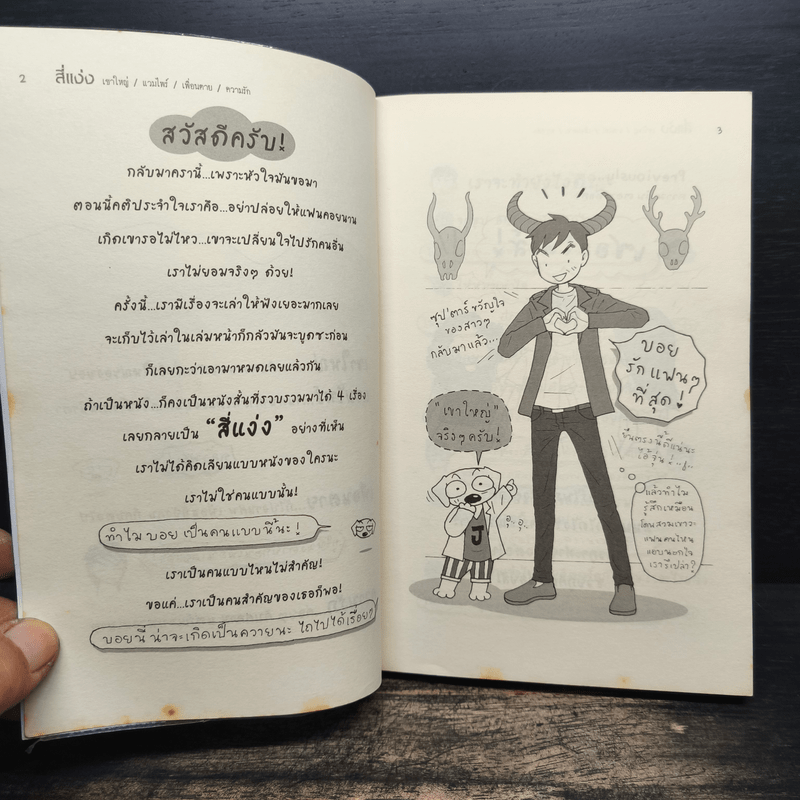 2 สี่แง่ง เขาใหญ่ / แวมไพร์ / เพื่อนตาย / ความรัก
สวัสดีครับ!
กลับมาครานี้...เพราะหัวใจมันขอมา
ตอนนี้คติประจำใจเราคือ...อย่าปล่อยให้แฟนคอยนาน
เกิดเขารอไม่ไหว...เขาจะเปลี่ยนใจไปรักคนอื่น
เราไม่ยอมจริงๆ ด้วย!
ครั้งนี้...เรามีเรื่องจะเล่าให้ฟังเยอะมากเลย
จะเก็บไว้เล่าในเล่มหน้าก็กลัวมันจะบูดซะก่อน
ก็เลยกะว่าเอามาหมดเลยแล้วกัน
ถ้าเป็นหนัง...ก็คงเป็นหนังสั้นที่รวบรวมมาได้ 4 เรื่อง
เลยกลายเป็น "สี่แง่ง" อย่างที่เห็น
เราไม่ได้คิดเลียนแบบหนังของใครนะ
เราไม่ใช่คนแบบนั้น!
ทำไม บอย เป็นคนแบบนี้นะ!
เราเป็นคนแบบไหนไม่สำคัญ!
ขอแค่...เราเป็นคนสำคัญของเธอก็พอ!
บอยนี่ น่าจะเกิดเป็นควายนะ ไถไปได้เรื่อย?
3
ซุป'ตาร์ ขวัญใจ
ของสาวๆ
กลับมาแล้ว...
บอย
รักแฟนๆ
ที่สุด!
"เขาใหญ่"
จริงๆครับ!
ยืนตรงนี้ดีแน่นะ
ไอ้จุ่น!
อุ๊ อุ๊..
J
แล้วทำไม
รู้สึกเหมือน
โดนสวมเขาวะ
แฟนคนไหน
แอบนอกใจ
เรารึเปล่า?